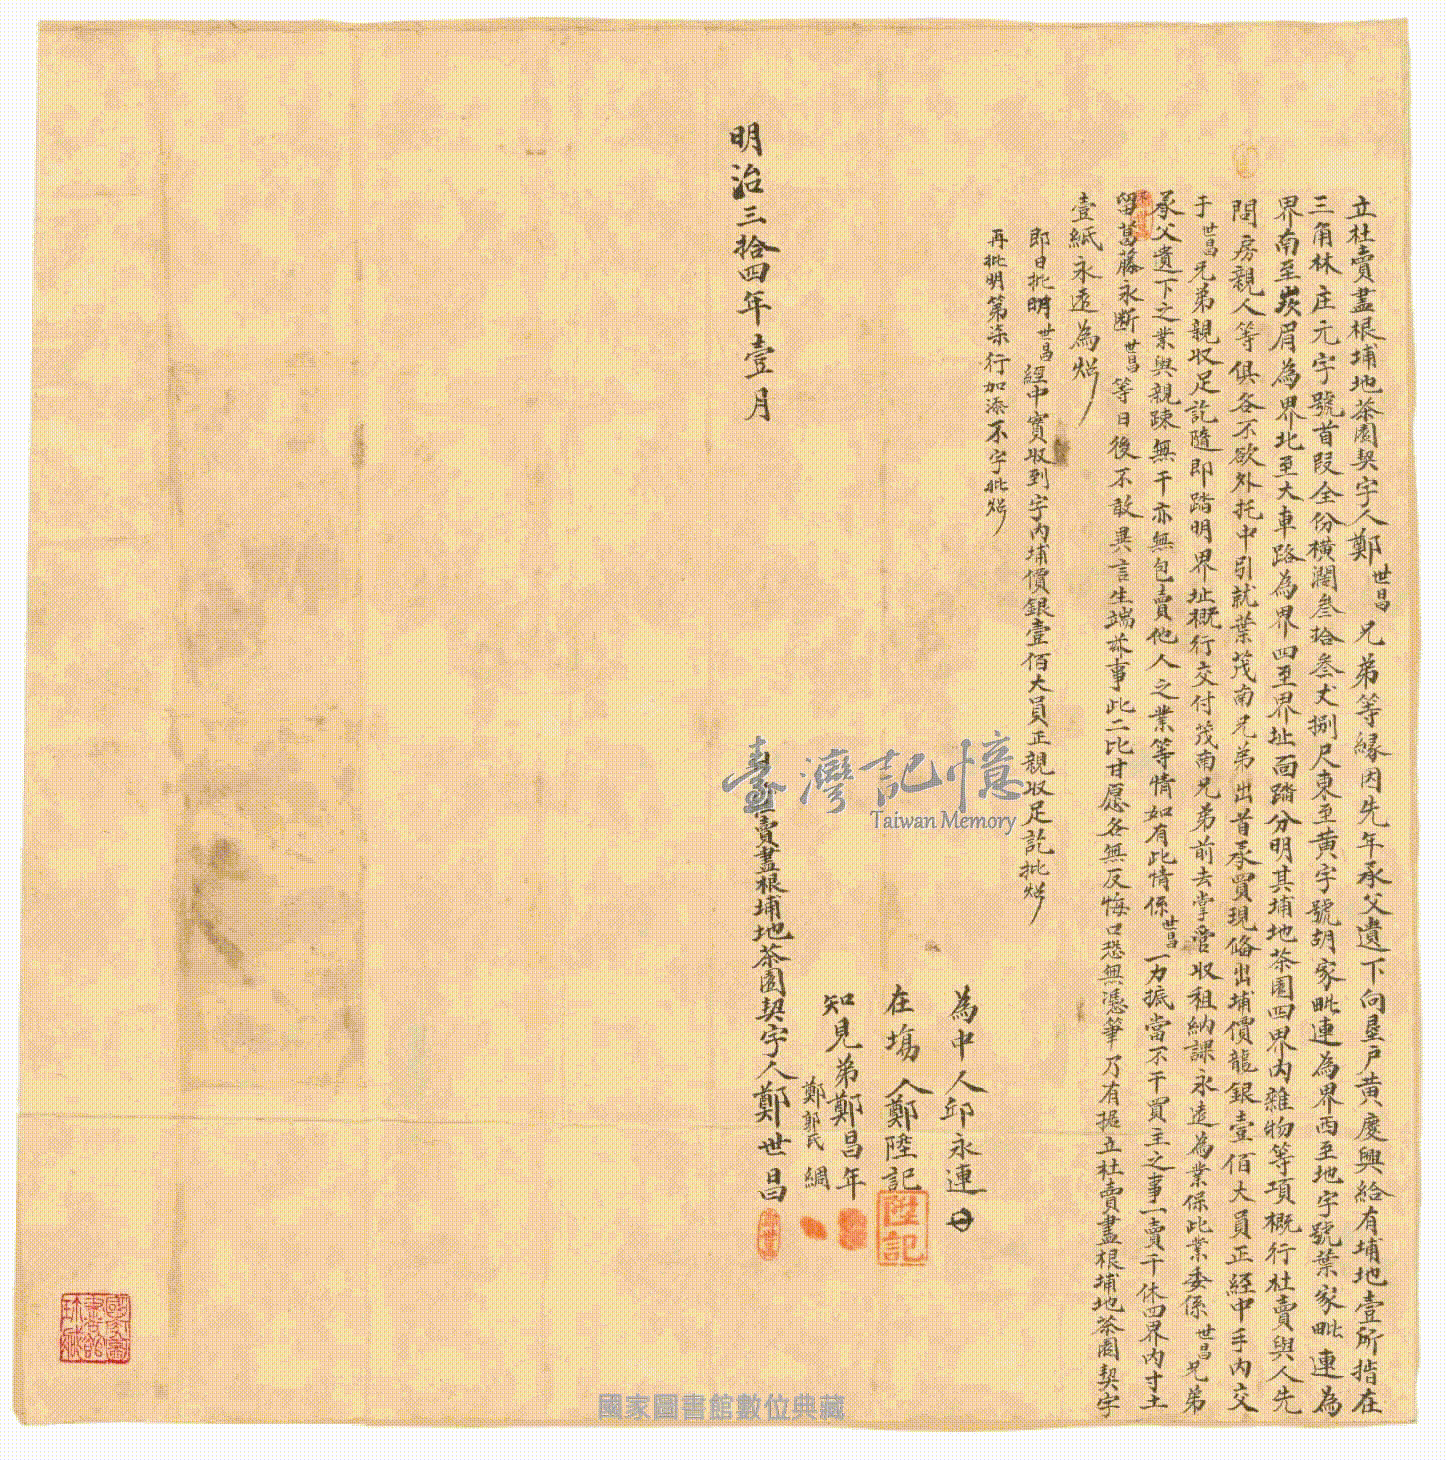 立杜賣盡根埔地茶園契字人鄭世昌兄弟等緣因先年承父遺下向墾戶黃慶興給有埔地壹所指在
三角林庄元字號首段全份橫濶叁拾叁丈捌尺東至黃字號胡家毗連為界西至地字號葉家毗連為
界南至崁眉為界北至大車路為界四至界址面踏分明其埔地茶園四界內雜物等項概行杜賣與人先
問房親人等俱各不欲外托中引就葉茂南兄弟出首承買現俻出埔價龍銀壹佰大員正經中手內交
于世昌兄弟親收足訖隨即踏明界址概行交付茂南兄弟前去掌管收租納課永遠為業保此業委係世昌兄弟
承父遺下之業與親疎無干亦無包賣他人之業等情如有此情係世昌一力抵當不干買主之事一賣千休四界內寸土
留葛藤永断世昌等日後不敢異言生端茲事此二比甘愿各無反悔口恐無憑筆乃有據立杜賣盡根埔地茶園契字
壹紙永遠為炤
即日批明世昌經中實收到字內埔價銀壹佰大員正親收足訖批炤
再批明第柒行加添不字批炤
為中人邱永連
在塲人鄭陞記
陞記
知見弟鄭昌年
鄭郭氏綢
明治三拾四年壹月
賣盡根埔地茶園契字人鄭世昌
臺灣記憶
Taiwan Memory
國家圖書館數位典藏